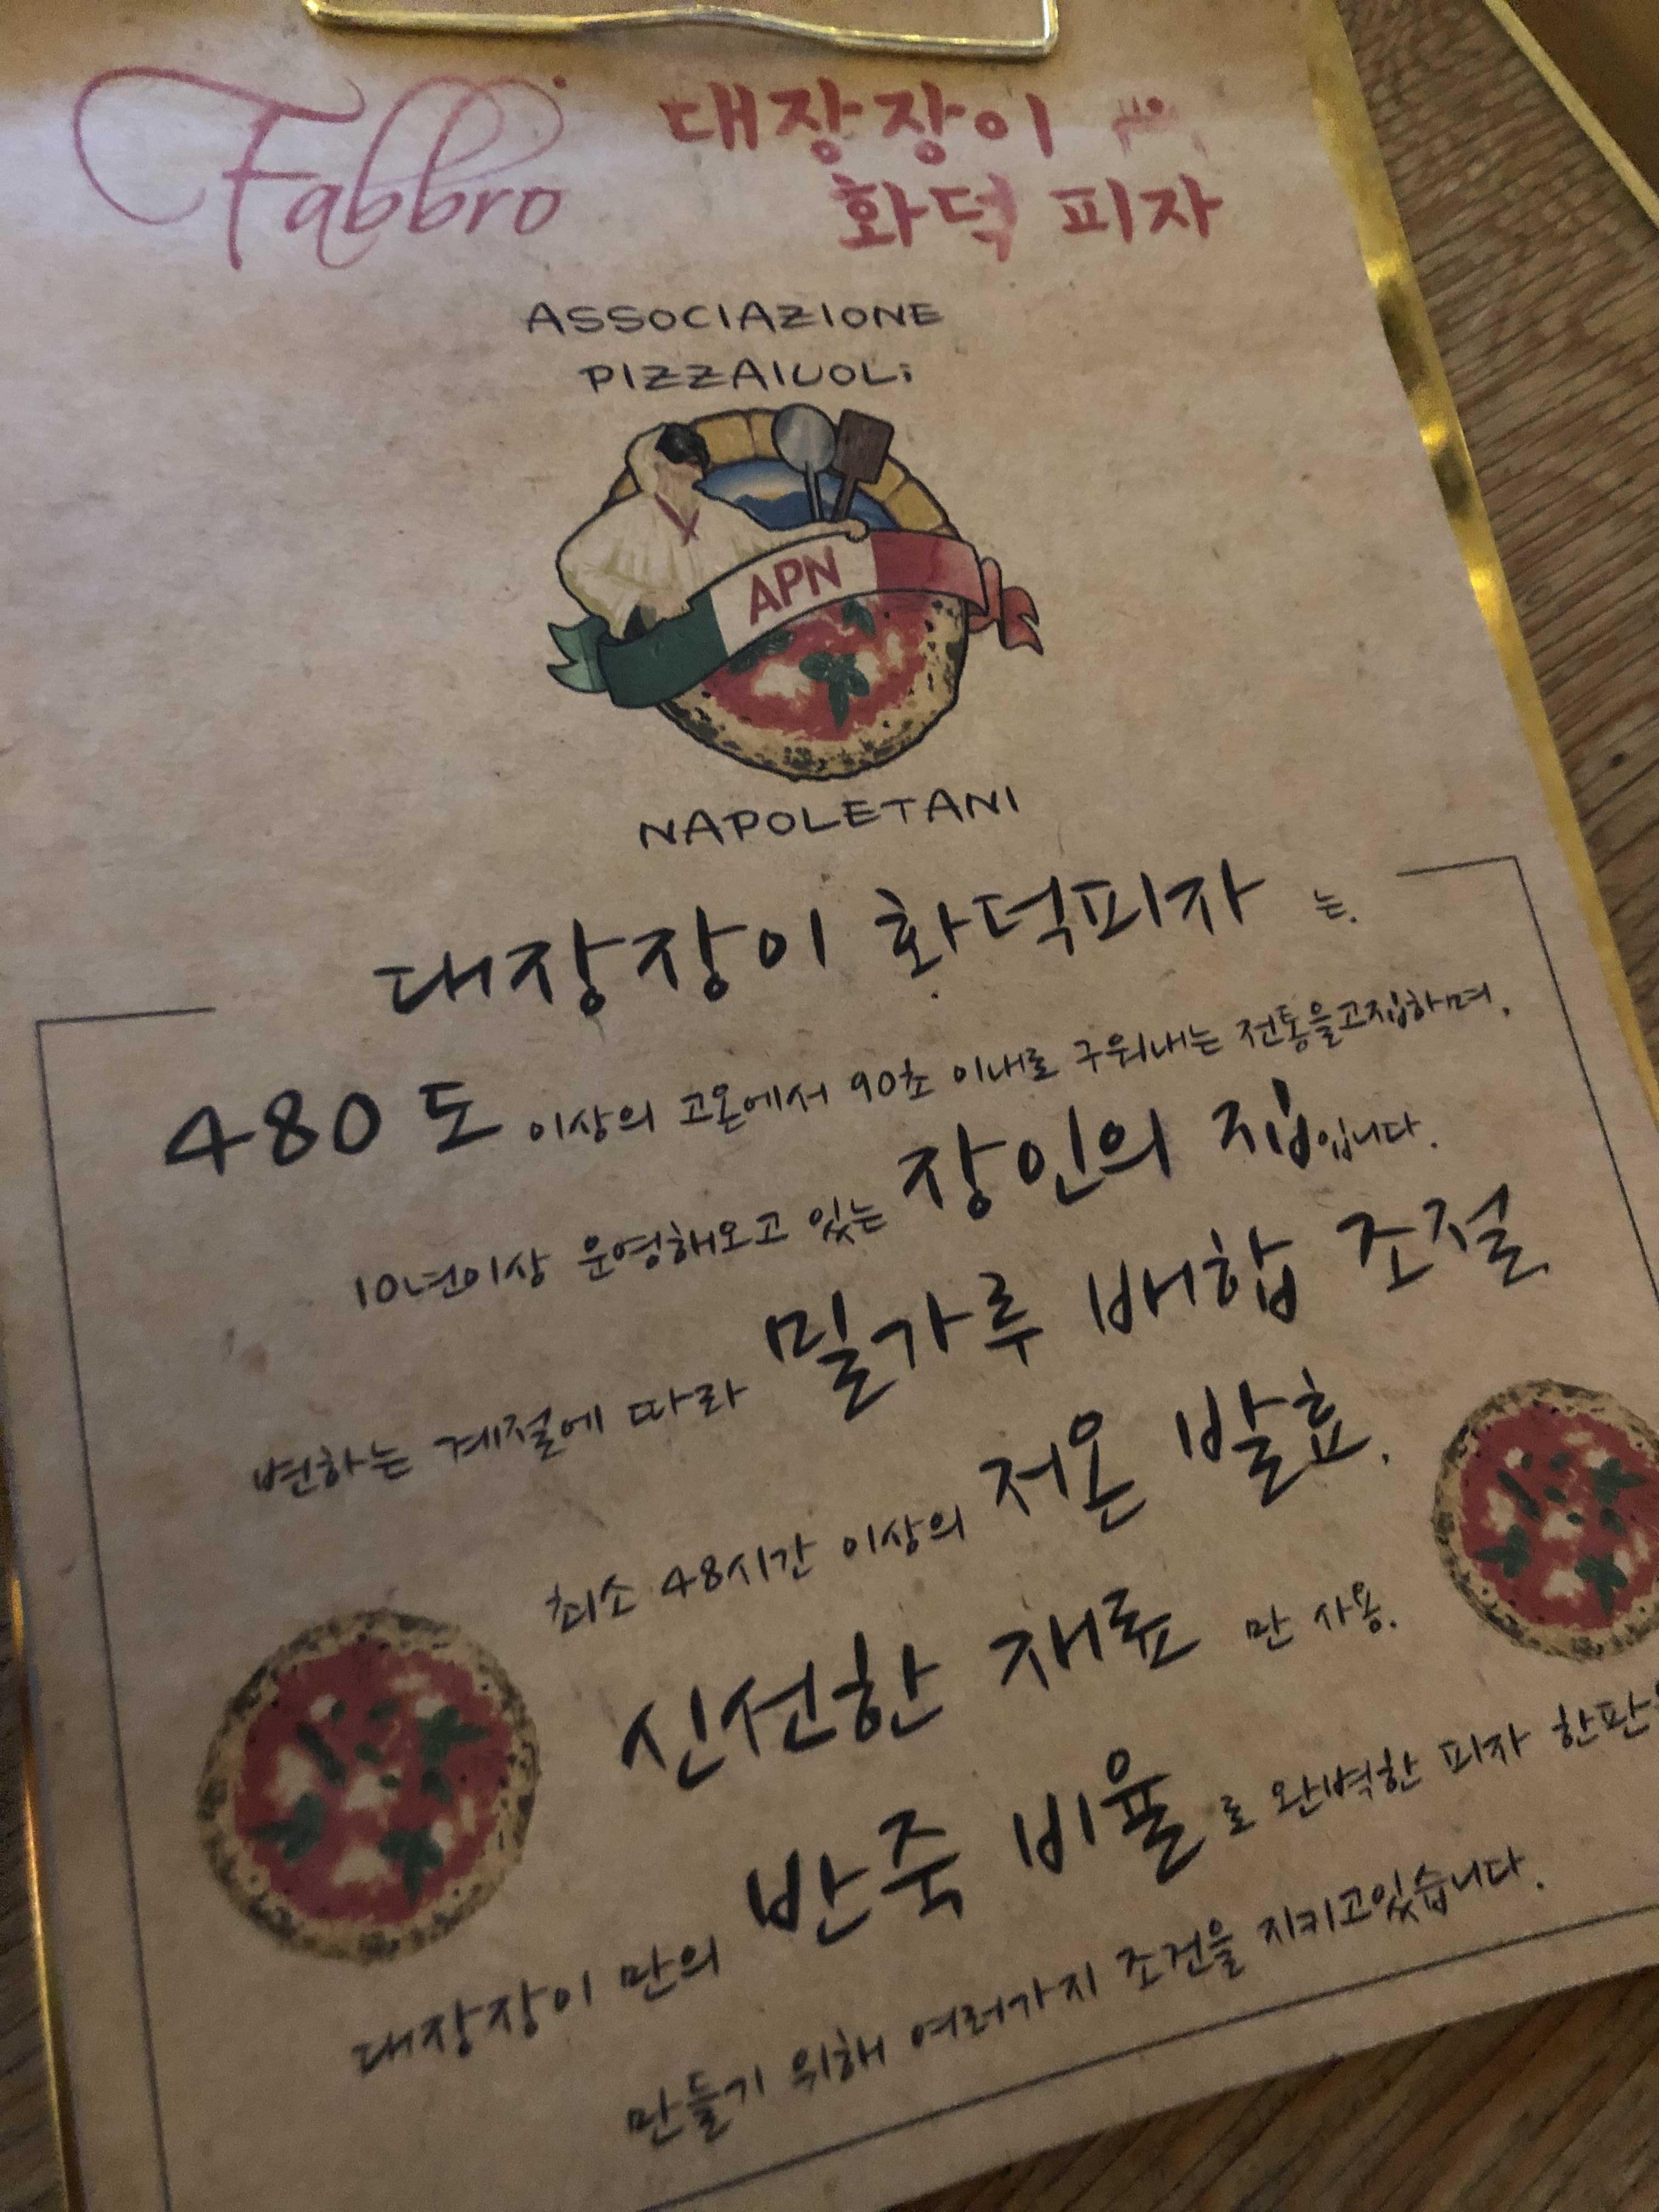 Fabbro
대장장이
화덕 피자
ASSOCIAZIONE
PIZZAIUOLi
APN
NAPOLETANI
대장장이 화덕피자 는.
480 도 이상의 고온에서 90초 이내로 구워내는 전통을고집하며,
10년이상 운영해오고 있는 장인의 집입니다.
변하는 계절에 따라 밀가루 배합 조절.
최소 48시간 이상의 저온 발효.
신선한 재료 만 사용.
대장장이 만의 반죽 비율로 완벽한 피자 한판
만들기 위해 여러가지 조건을 지키고있습니다.